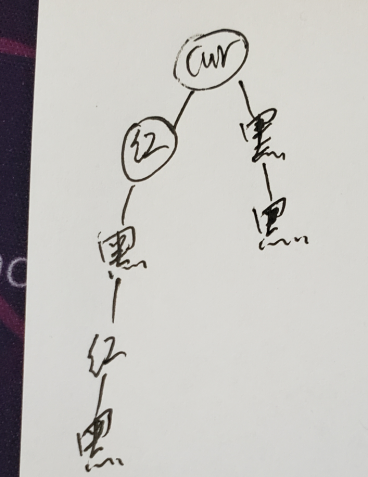 cur
红 黑
黑 黑
红
黑